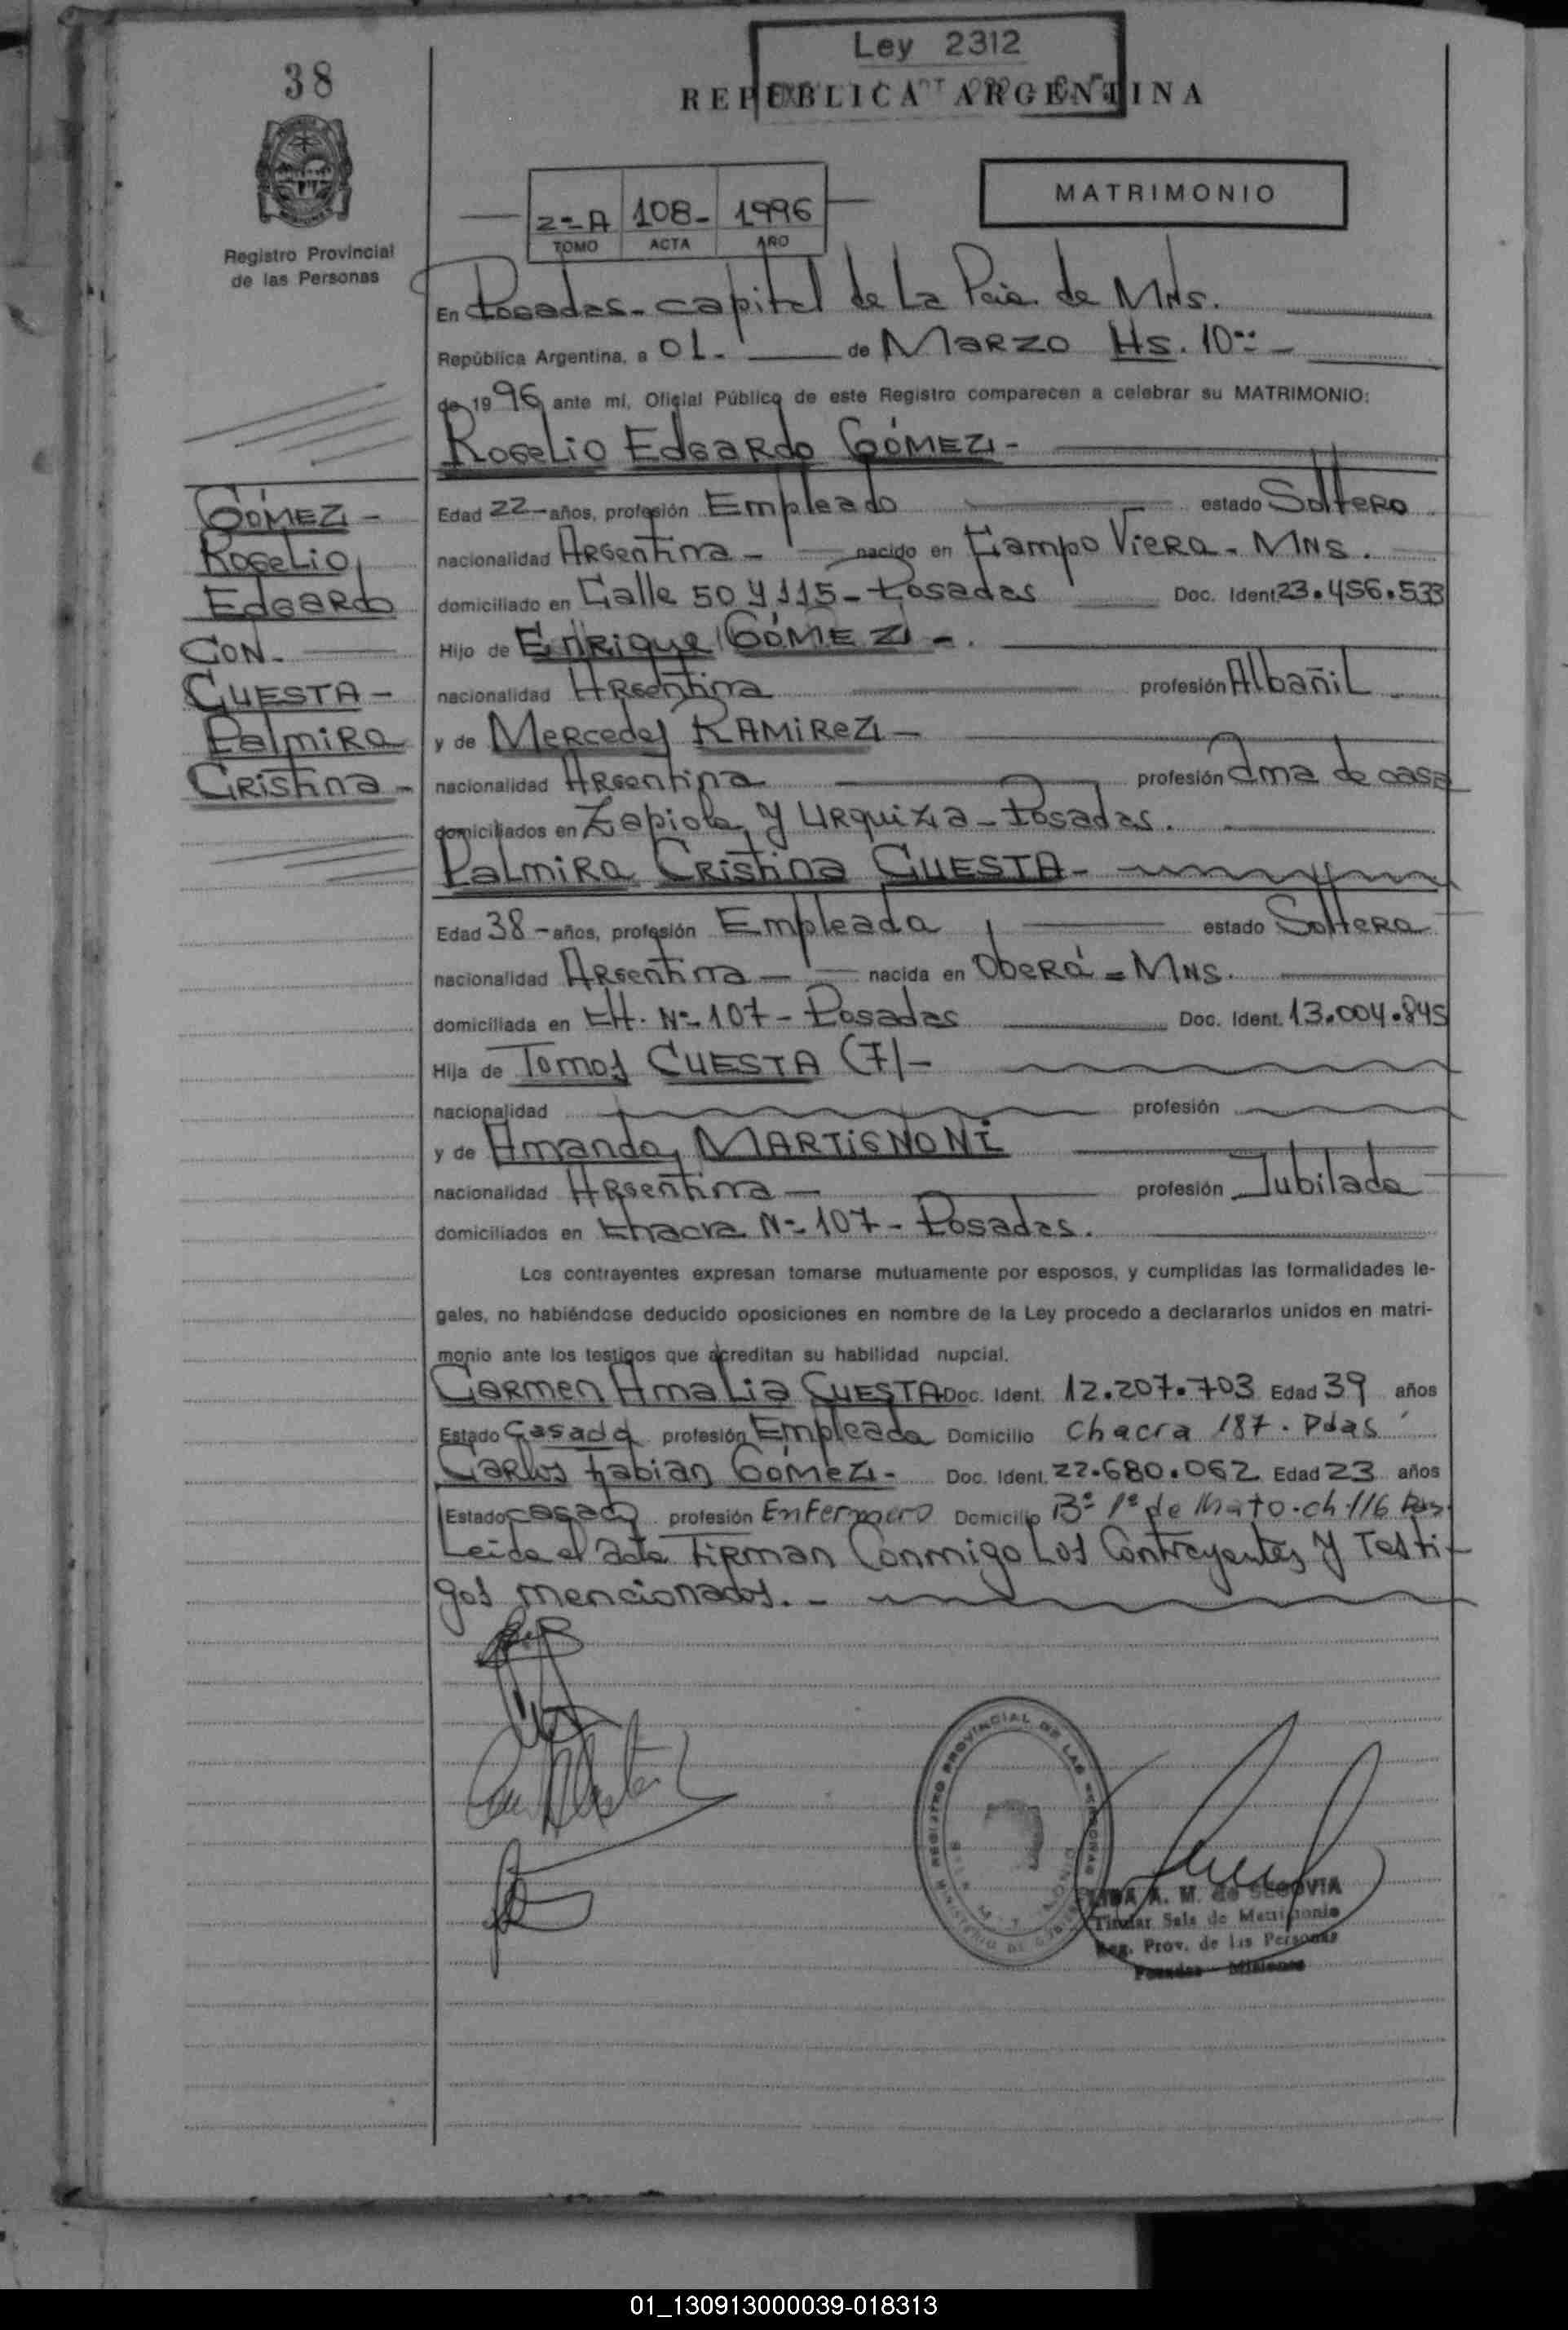 Ley 2312
38
REPUBLICA ARGENTINA
MATRIMONIO
2º-A 108- 1996
TOMO ACTA AÑO
Registro Provincial
de las Personas
En Posadas - capital de La Pcia. de MNs.
República Argentina, a 01.- de MARZO Hs. 10
de 1996 ante mí, Oficial Público de este Registro comparecen a celebrar su MATRIMONIO:
Rogelio Edgardo GÓMEZ -
Edad 22 - años, profesión Empleado estado Soltero
nacionalidad Argentina - nacido en Campo Viera - MNS.
domiciliado en Calle 50 y 115 - Posadas Doc. Ident. 23.456.533
Hijo de Enrique GÓMEZ -.
nacionalidad Argentina profesión Albañil
y de Mercedes RAMIREZ -
nacionalidad Argentina profesión Ama de casa
domiciliados en Zapiola y Urquiza - Posadas.
GÓMEZ -
Rogelio
Edgardo
CON -
CUESTA -
Palmira
Cristina -
Palmira Cristina CUESTA -
Edad 38 - años, profesión Empleada estado Soltera
nacionalidad Argentina - nacida en Oberá - MNS.
domiciliada en CH. Nº 107 - Posadas Doc. Ident. 13.004.845
Hija de Tomas CUESTA (F) -
nacionalidad profesión
y de Amanda MARTIGNONI
nacionalidad Argentina - profesión Jubilada
domiciliados en Chacra Nº 107 - Posadas.
Los contrayentes expresan tomarse mutuamente por esposos, y cumplidas las formalidades le-
gales, no habiéndose deducido oposiciones en nombre de la Ley procedo a declararlos unidos en matri-
monio ante los testigos que acreditan su habilidad nupcial.
Carmen Amalia CUESTA Doc. Ident. 12.207.703 Edad 39 años
Estado Casada profesión Empleada Domicilio Chacra 187. Pdas
Carlos Fabian GOMEZ - Doc. Ident. 22.680.062 Edad 23 años
Estado casado profesión Enfermero Domicilio Bº 1º de Mayo - ch. 116 Pdas.
Leida el acta Firman Conmigo Los Contrayentes y Testi-
gos mencionados. -
REGISTRO PROVINCIAL DE LAS PERSONAS
MINISTERIO DE GOBIERNO
A. M. de SEGOVIA
Titular Sala de Matrimonio
Reg. Prov. de las Personas
Posadas - Misiones
01_130913000039-018313